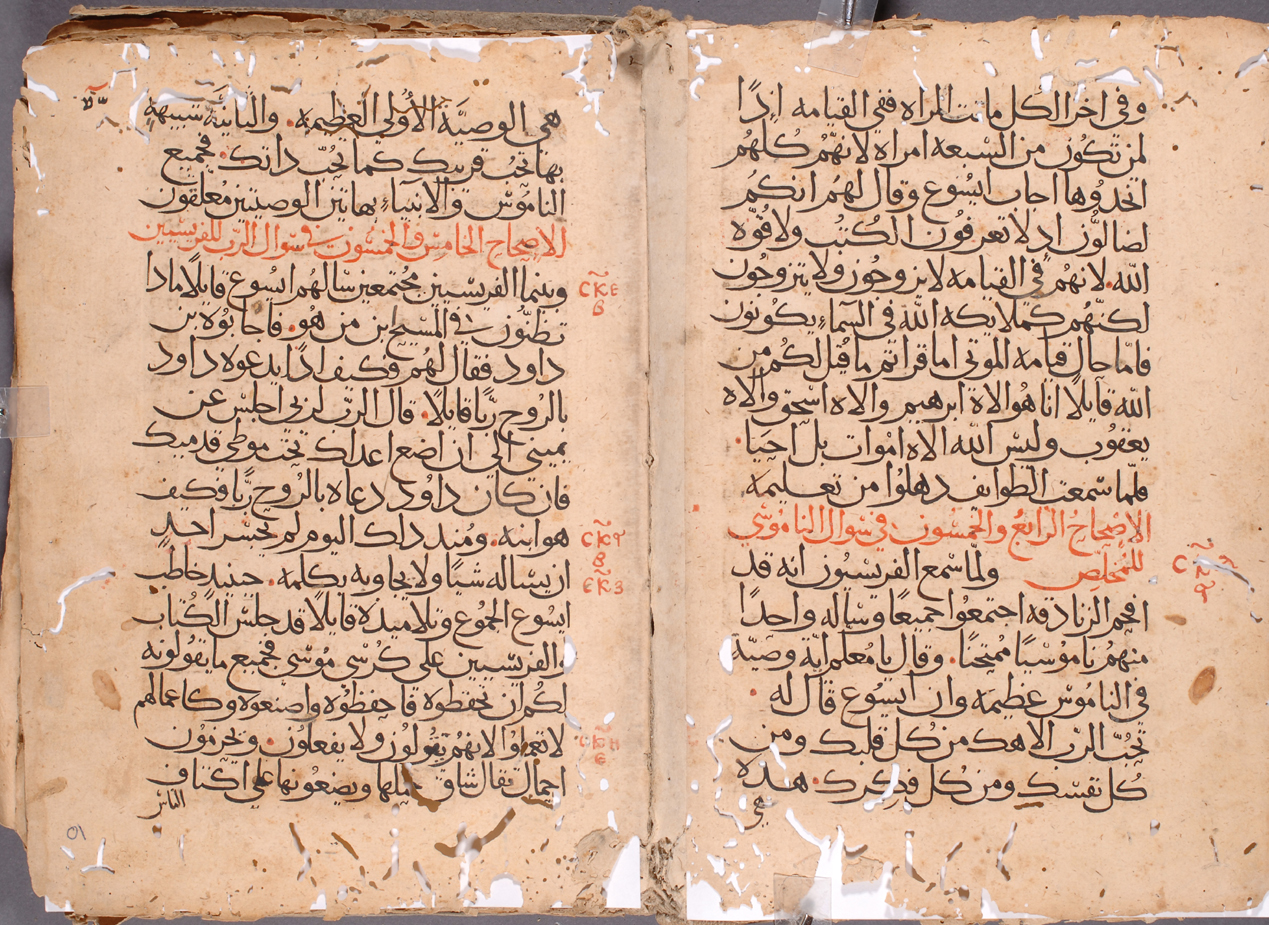 وفي اخر الكل ماتت المراه ففي القيامه اذًا
لمن تكون من السبعه امراه لانهم كلهم
اتخدوها اجاب ايسوع وقال لهم انكم
لضالون اد لا تعرفون الكتب ولا قوّه
اللّه. لانهم في القيامه لا يزوجون ولا يتزوجون
لكنهم كملايكه اللّه في السماء يكونون
فامّا حال قيامه الموتي اما قراتم ما قيل لكم من
اللّه قايلًا انا هو الاه ابرهيم والاه اسحق والاه
يعقوب وليس اللّه الاه اموات بل احيا.
فلمّا سمعت الطوايف دهلوا من تعليمه
الاصحاح الرابع والخمسون في سوال الناموسي
للمخلص ولمّا سمع الفريسيون انه قد
افحم الزنادقه اجتمعوا جميعًا وساله واحدًا
منهم ناموسيًا ممتحنًا. وقال يا معلم ايّة وصيّة
في الناموس عظيمه وان ايسوع قال له
تحبّ الربّ الاهك من كل قلبك ومن
كل نفسك ومن كل فكرك. هده
هي
هي الوصيّة الأولي العظيمه. والثانية شبيهةٍ
بها تحبّ قريبك كما تحبّ داتك. فجميع
الناموس والانبياء بهاتين الوصيتين معلقون
الاصحاح الخامس والخمسون في سوال الرب للفريسيين
وبينما الفريسيين مجتمعين سالهم ايسوع قايلًا مادا
تظنون في المسيح ابن من هو. فاجابوه بن
داود فقال لهم فكيف ادًا يدعوه داود
بالروح ربًّا قايلًا. قال الربّ لربي اجلس عن
يميني الي ان اضع اعداك تحت موطي قدميك
فان كان داود دعاه بالروح ربًّا فكيف
هو ابنه. ومند داك اليوم لم يجسر احدٍ
ان يساله شيًا ولا يجاوبه بكلمه. حينيد خاطب
ايسوع الجموع وتلاميده قايلًا قد جلس الكتاب
والفريسيين علي كرسي موسي فجميع ما يقولونه
لكم ان تحفظوه فاحفظوه واصنعوه وكاعمالهم
لا تعملوا لانهم يقولون ولا يفعلون. ويحزمون
احمال ثقال شاق حملها ويضعونها علي اكتاف
الناس